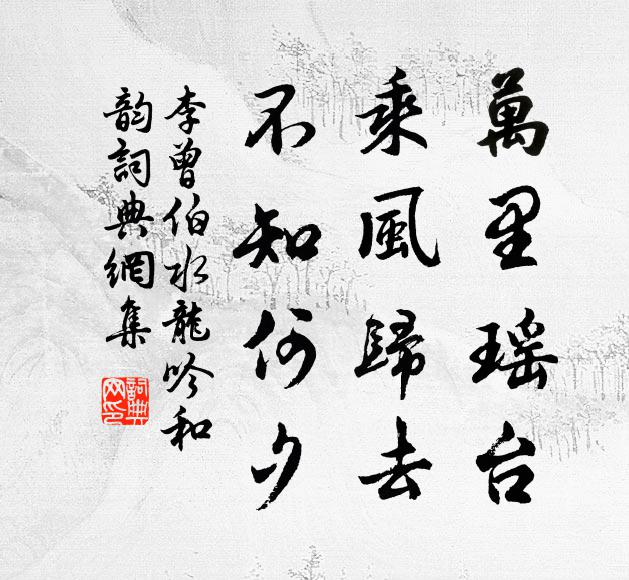 萬里瑶台
乘風歸去
不知何夕
李曾伯水龍吟和
韵詞典網集
詞典
网印